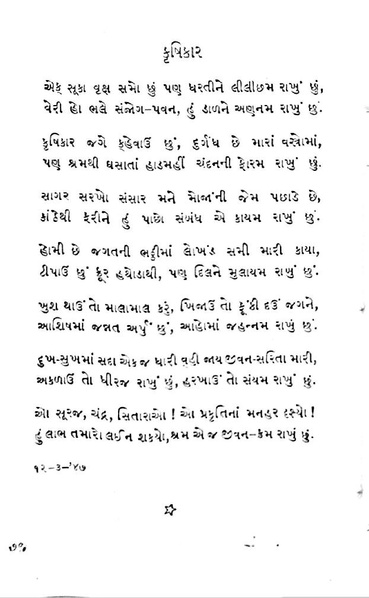 કૃષિકાર
એક સૂકા વૃક્ષ સમો છું પણ ધરતીને લીલીછમ રાખું છું,
વેરી હો ભલે સંજોગ-પવન, હું ડાળને અણનમ રાખું છું.
કૃષિકાર જગે કહેવાઉં છું, દુર્ગંધ છે મારાં વસ્ત્રોમાં,
પણ શ્રમથી ઘસાતાં હાડમહીં ચંદનની ફોરમ રાખું છું.
સાગર સરખો સંસાર મને મોજાંની જેમ પછાડે છે,
કાંઠેથી ફરીને હું પાછો સંબંધ એ કાયમ રાખું છું.
હોમી છે જગતની ભઠ્ઠીમાં લોખંડ સમી મારી કાયા,
ટીપાઉં છું ક્રૂર હથોડાથી, પણ દિલને મુલાયમ રાખું છું.
ખુશ થાઉં તો માલામાલ કરું, ખિજાઉં તો ફૂંકી દઉં જગને,
આશિષમાં જન્નત અર્પું છું, આહોમાં જહન્નમ રાખું છું.
દુખ-સુખમાં સદા એકજ ધારી વહી જાય જીવન-સરિતા મારી,
અકળાઉં તો ધીરજ રાખું છું, હરખાઉં તો સંયમ રાખું છું.
ઓ સૂરજ, ચંદ્ર, સિતારાઓ ! ઓ પ્રકૃતિનાં મનહર દૃશ્યો!
હું લાભ તમારો લઈ ન શક્યો, શ્રમ એ જ જીવન-ક્રમ રાખું છું.
૧૨-૩-'૪૭